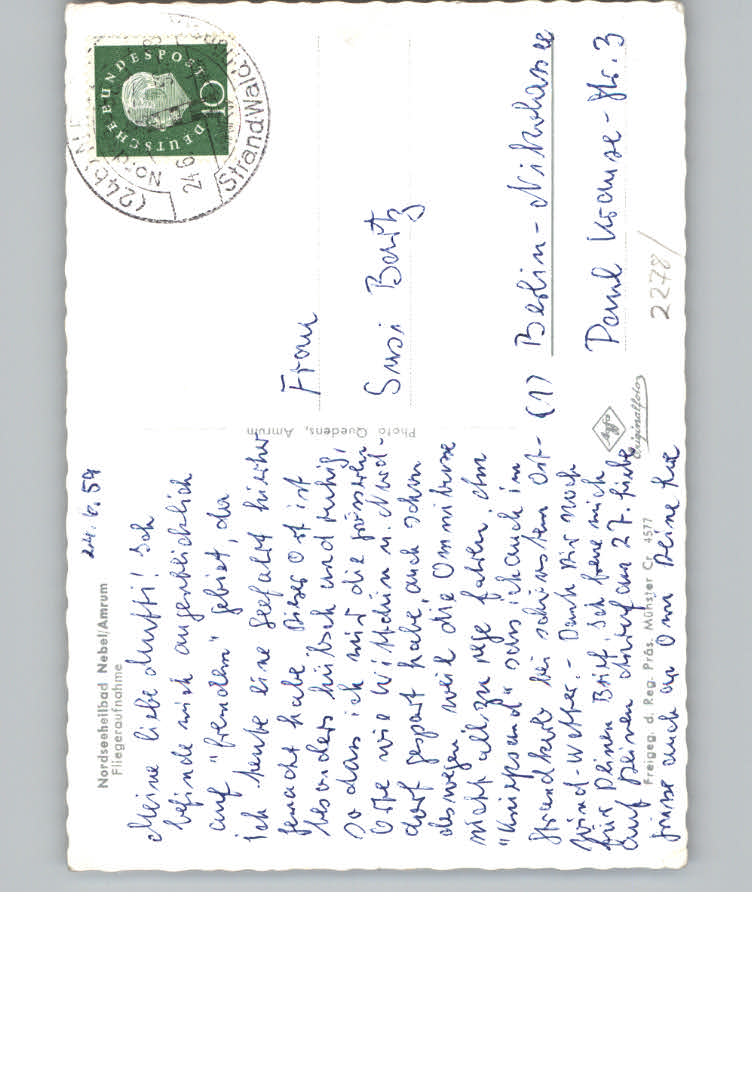 Nordseeheilbad Nebel/Amrum
Fliegeraufnahme
24.6.59
Meine liebe Mutti! Ich
befinde mich augenblicklich
auf "fremdem" Gebiet, da
ich heute eine Seefahrt hierher
gemacht habe. Dieser Ort ist
besonders hübsch und ruhig,
so dass ich mir die grösseren
Orte wie Wittdün u. Nord-
dorf gespart habe, auch schon
deswegen, weil die Omnibusse
nicht allzu rege fahren. Am
"Kniepsand" sass ich auch im
Strandkorb bei schönstem Ost-
wind-Wetter. - Dank Dir noch
für Deinen Brief. Ich freue mich
auf Deinen Anruf am 27. früh.
Grüsse auch an Omi Deine
Photo Quedens, Amrum
DEUTSCHE BUNDESPOST
10
(24b)
Nord
24.6
Strand Wald
Frau
Susi
(1) Berlin-Nikolassee
Paul Krause-Str. 3
2278/
Agfa
Originalfoto
Freigeg. d. Reg. Präs. Münster Cr. 4577